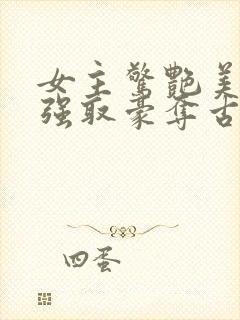 女主惊艳美
强取豪夺古
四蛋